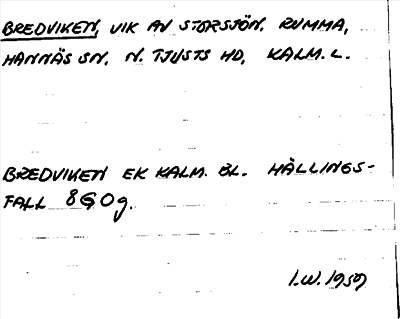 BREDVIKEN, VIK AV STORSJÖN. RUMMA,
HANNÄS SN. N. TJUSTS HD, KALM. L.
BREDVIKEN EK KALM. BL. HÄLLINGS-
FALL 8G0g.
I.W. 1959